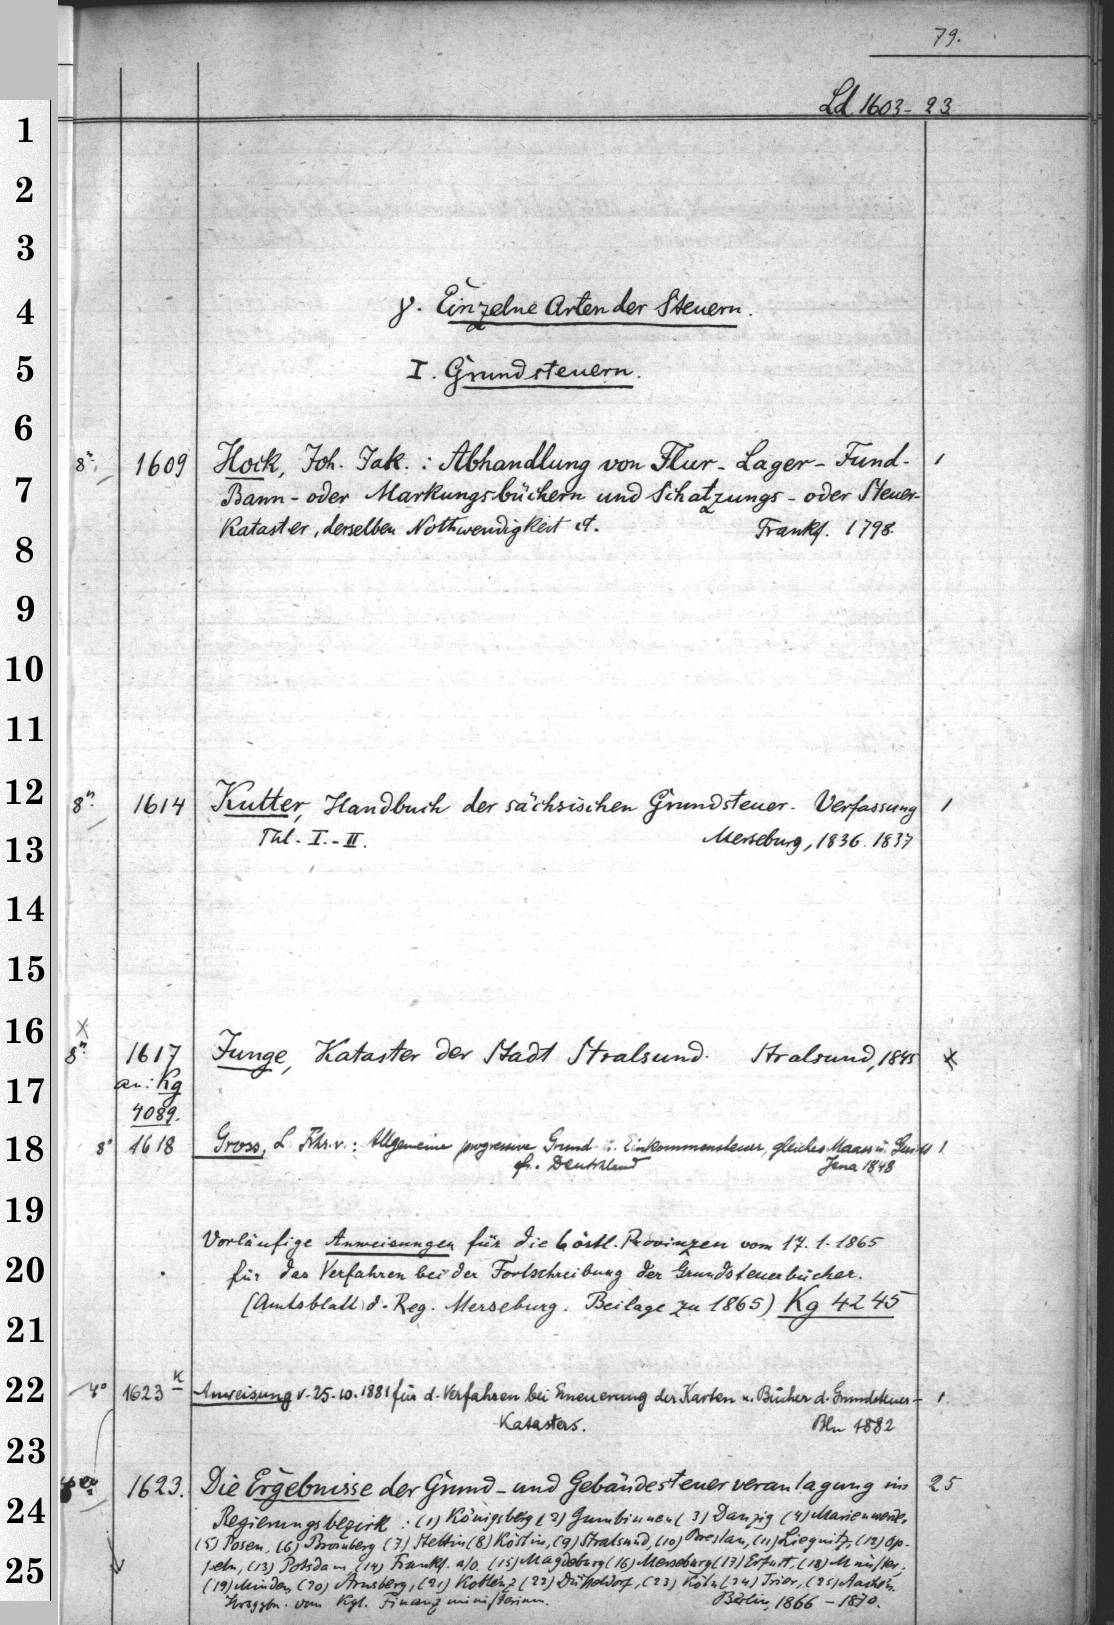 79.
Ld. 1603-23
1
2
3
4
5
6
7
8
9
10
11
12
13
14
15
16
17
18
19
20
21
22
23
24
25
γ. Einzelne Arten der Steuern.
I. Grundsteuern.
8° 1609 Hock, Joh. Jak.: Abhandlung von Flur- Lager- Fund- 1
Bann- oder Markungsbüchern und Schatzungs- oder Steuer-
Kataster, derselben Nothwendigkeit et. Frankf. 1798.
8° 1614 Kutter, Handbuch der sächsischen Grundsteuer-Verfassung 1
Thl. I.-II. Merseburg, 1836. 1837
x
8° 1617 Junge, Kataster der Stadt Stralsund. Stralsund, 1845 x
an: Kg
4089.
8° 1618 Gross, L. Frhr. v.: Allgemeine progressive Grund- u. Einkommensteuer, gleiches Maass u. 1
f. Deutschland Jena 1848
Vorläufige Anweisungen für die 6 östl. Provinzen vom 17.1.1865
für das Verfahren bei der Fortschreibung der Grundsteuerbücher.
(Amtsblatt d. Reg. Merseburg. Beilage zu 1865) Kg 4245
4° 1623 K Anweisung v. 25.10.1881 für d. Verfahren bei Erneuerung der Karten u. Bücher d. Grundsteuer- 1
Katasters. Bln 1882
1623. Die Ergebnisse der Grund- und Gebäudesteuerveranlagung im 25
Regierungsbezirk: (1) Königsberg (2) Gumbinnen (3) Danzig (4) Marienwerder,
(5) Posen, (6) Bromberg (7) Stettin (8) Köslin, (9) Stralsund, (10) Breslau, (11) Liegnitz, (12) Op-
peln, (13) Potsdam, (14) Frankf. a/O. (15) Magdeburg (16) Merseburg (17) Erfurt, (18) Münster,
(19) Minden, (20) Arnsberg, (21) Koblenz (22) Düsseldorf, (23) Köln (24) Trier, (25) Aachen.
Hrsggbn. vom Kgl. Finanzministerium. Berlin, 1866-1870.